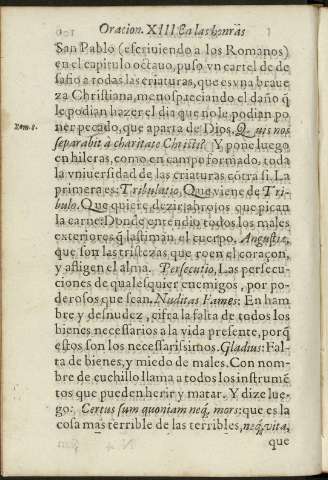 Oracion. XIII En las honras
San Pablo (escriuiendo a los Romanos)
en el capitulo octauo, puso vn cartel de de
safio a todas las criaturas, que es vna braue
za Christiana, menospreciando el daño q̃
le podian hazer el dia que no le podian po
ner pecado, que aparta de Dios. Quis nos
separabit à charitate Christi? Y pone luego
en hileras, como en campo formado, toda
la vniuersidad de las criaturas cõtra si. La
primera es: Tribulatio. Que viene de Tri-
bulo. Que quiere dezir, abrojos que pican
la carne: Donde entendio todos los males
exteriores q̃ lastimã el cuerpo. Angustie,
que son las tristezas que roen el coraçon,
y afligen el alma. Persecutio. Las persecu-
ciones de qualesquier enemigos, por po-
derosos que sean. Nuditas Fames: En ham
bre y desnudez, cifra la falta de todos los
bienes necessarios a la vida presente, porq̃
estos son los necessarissimos. Gladius: Fal-
ta de bienes, y miedo de males. Con nom-
bre de cuchillo llama a todos los instrumẽ
tos que pueden herir y matar. Y dize lue-
go: Certus sum quoniam neq́, mors: que es la
cosa mas terrible de las terribles, neq́, vita,
que
Rom. 8.